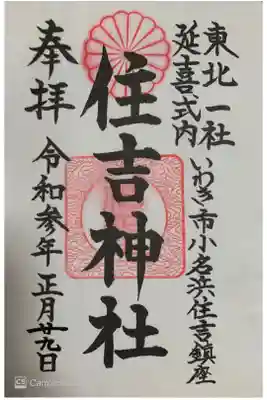 東北一社
延喜式内
いわき市小名浜住吉鎮座
住吉神社
奉拝
令和参年正月廿九日
CS